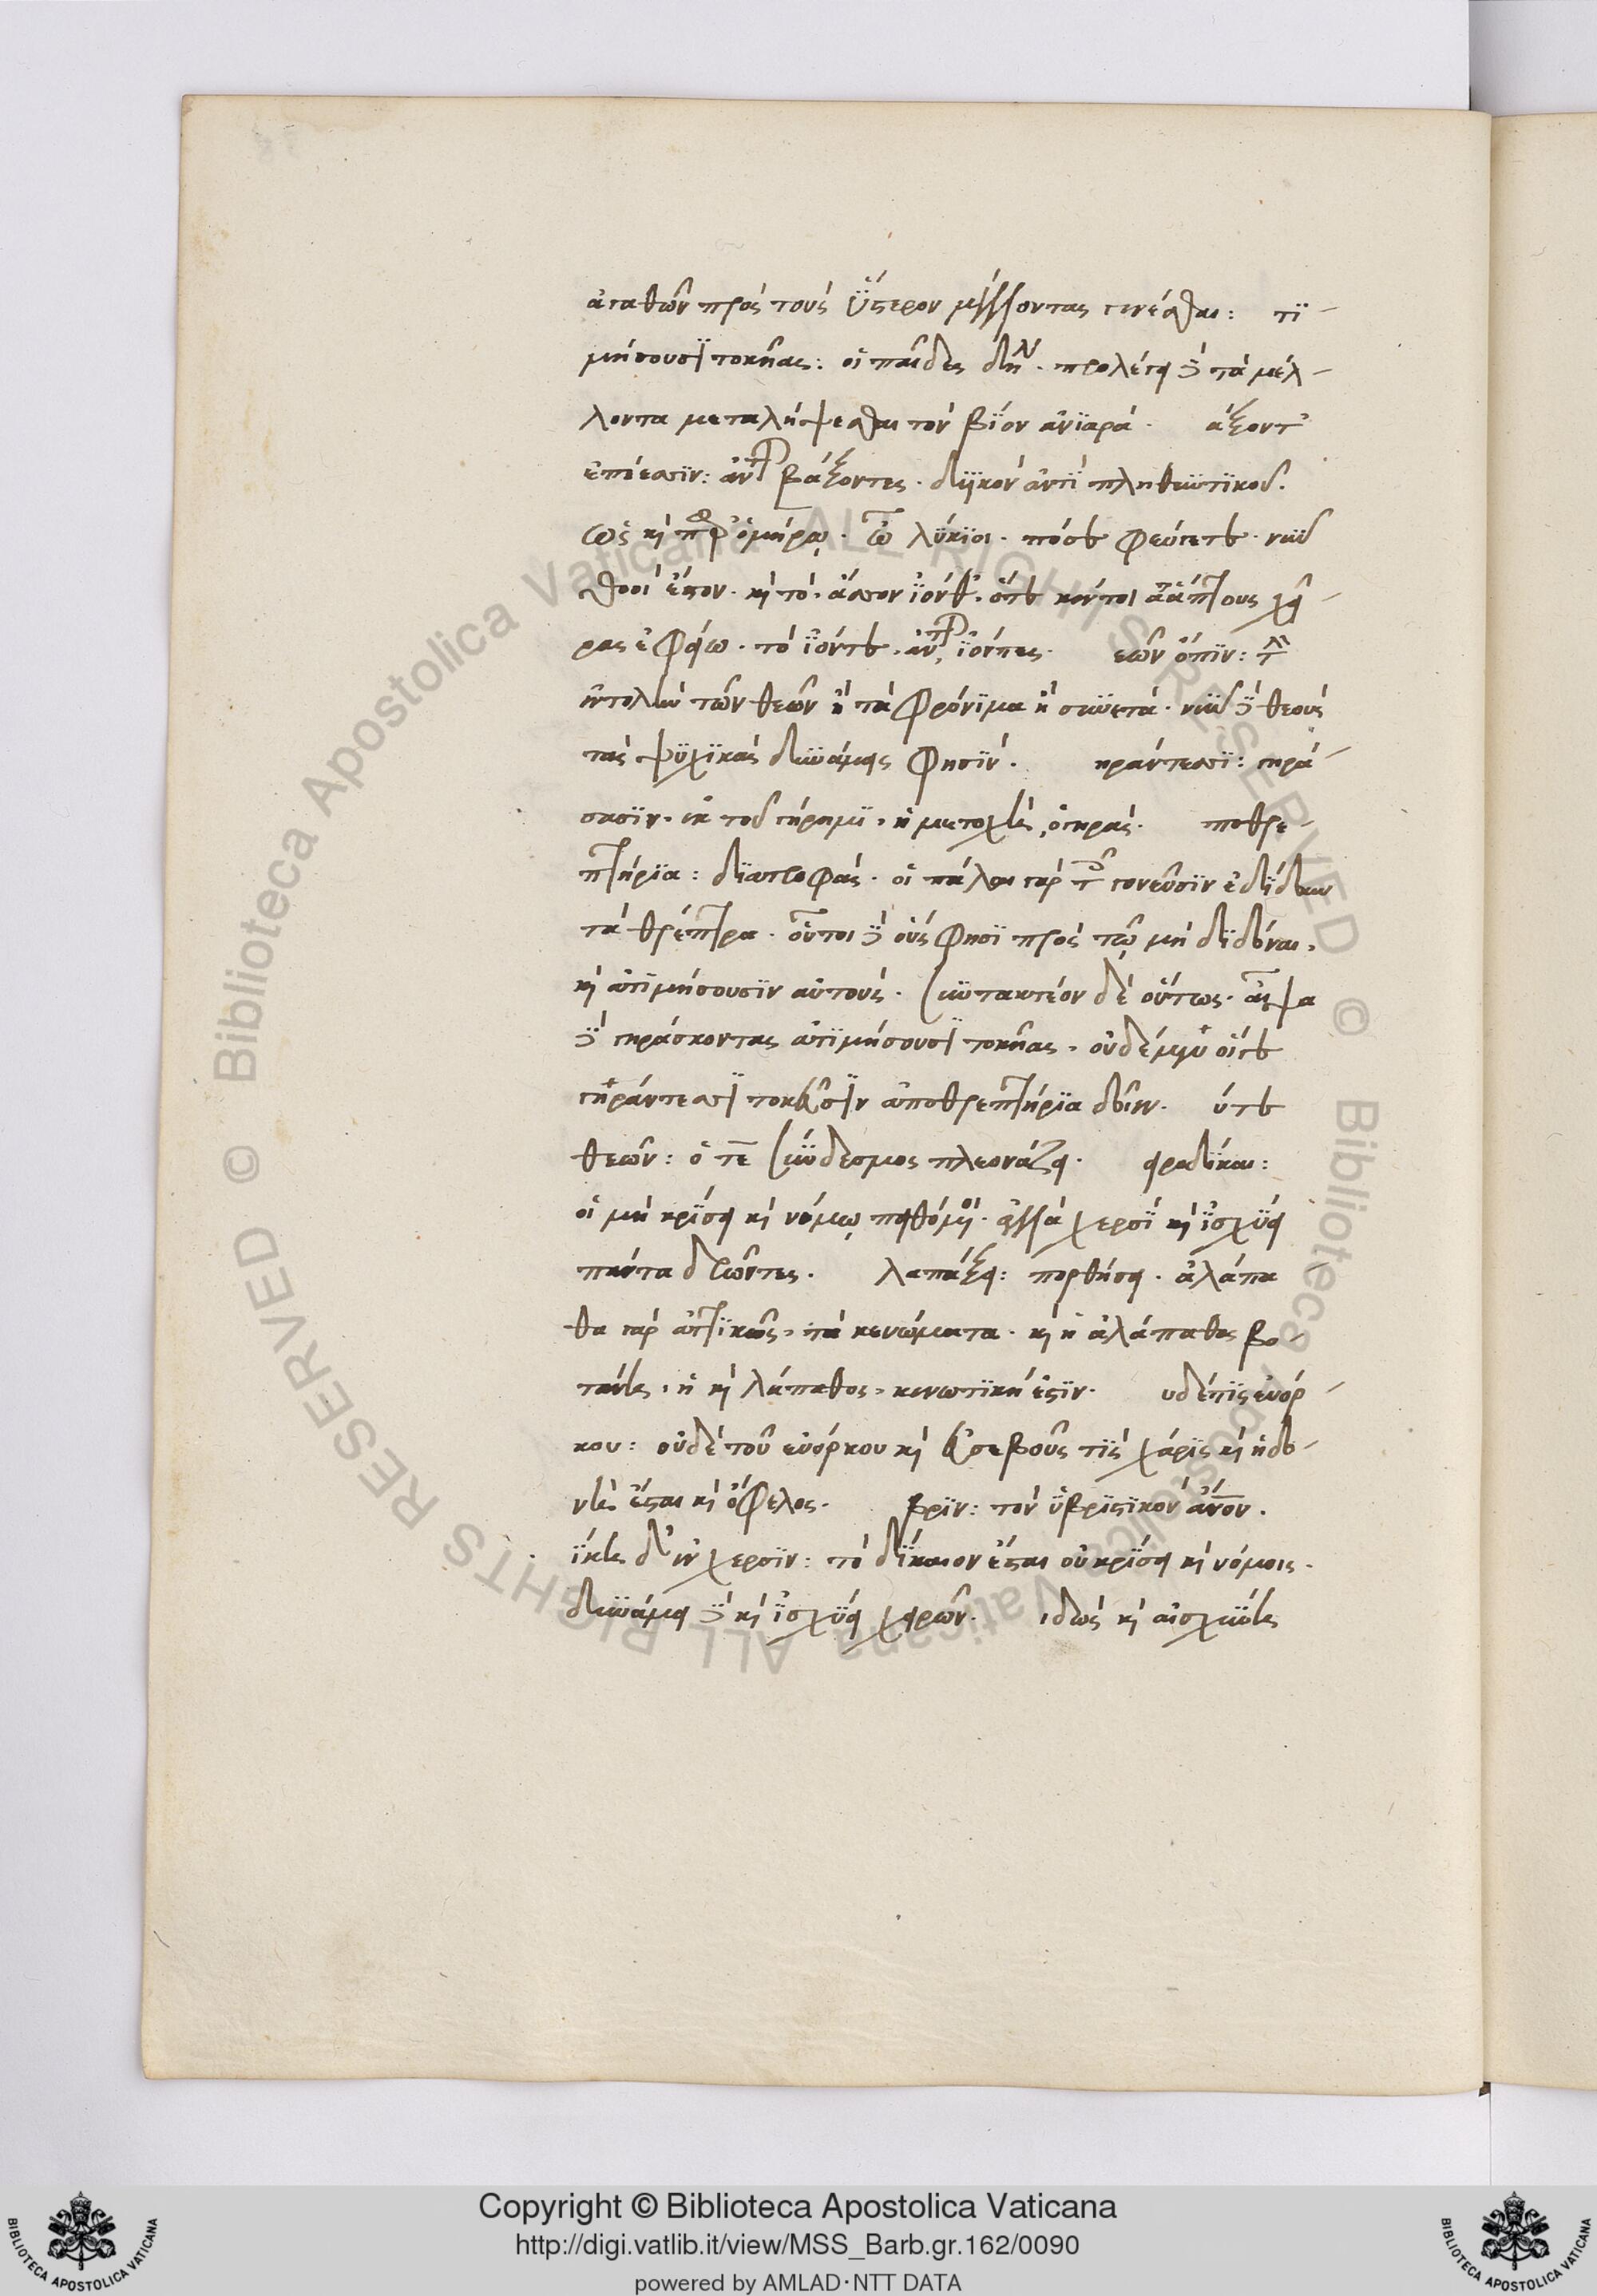 ἀγαθῶν πρὸς τοὺς ὕστερον μέλλοντας γενέσθαι: τι-
μήσουσι τοκῆας: οἱ παῖδες δηλ. προλέγει δὲ τὰ μέλ-
λοντα μεταλήψεσθαι τὸν βίον ἀνιαρά. άζοντ'
ἐπέεσσιν: ἀντὶ βάζοντες. δυϊκὸν ἀντὶ πληθυντικοῦ.
ὡς καὶ παρ' ὁμήρῳ. ὦ λύκιοι. πόσε φεύγετε. νῦν
θοοὶ ἔστον. καὶ τὸ. ἆσσον ἰόνθ'. ὅτε κέν τοι ἀάπτους χεῖ-
ρας ἐφείω. τὸ ἰόντε. ἀντὶ ἰόντες. εῶν ὄπιν: τὴν
ἐντολὴν τῶν θεῶν ἢ τὰ φρόνιμα ἢ συνετά. νῦν δὲ θεοὺς
τὰς ψυχικὰς δυνάμεις φησίν. ηράντεσσι: γηρά-
σασιν. ἐκ τοῦ γήρημι. ἡ μετοχὴ, ὁ γηράς. ποθρε-
πτήρια: διατροφάς. οἱ πάλαι γὰρ τοῖς γονεῦσιν ἐδίδουν
τὰ θρέπτρα. οὗτοι δὲ οὕς φησι πρὸς τῷ μὴ διδόναι,
καὶ ἀτιμήσουσιν αὐτούς. συντακτέον δὲ οὕτως. αἶψα
δὲ γηράσκοντας ἀτιμήσουσι τοκῆας. οὐδέ μὲν οἵγε
γηράντεσσι τοκεῦσιν ἀποθρεπτήρια δοῖεν. ύτε
θεῶν: ὁ τε σύνδεσμος πλεονάζει. ειροδίκαι:
οἱ μὴ κρίσει καὶ νόμῳ πειθόμενοι. ἀλλὰ χερσὶ καὶ ἰσχύϊ
πάντα δρῶντες. λαπάξει: πορθήσει. ἀλάπα
θα γὰρ ἀττικῶς, τὰ κενώματα. καὶ ἡ ἀλάπαθος βο-
τάνη, ἡ καὶ λάπαθος, κενωτική ἐστιν. υδέ τις εὐόρ-
κου: οὐδὲ τοῦ εὐόρκου καὶ εὐσεβοῦς τις χάρις καὶ ἡδο-
νὴ ἔσται καὶ ὄφελος. βριν: τὸν ὑβριστικὸν ἄνον.
ίκη δ' ἐν χερσὶν: τὸ δίκαιον ἔσται οὐ κρίσει καὶ νόμοις.
δυνάμει δὲ καὶ ἰσχύϊ χειρῶν. ιδὼς καὶ αἰσχύνη
Copyright © Biblioteca Apostolica Vaticana
http://digi.vatlib.it/view/MSS_Barb.gr.162/0090
powered by AMLAD·NTT DATA